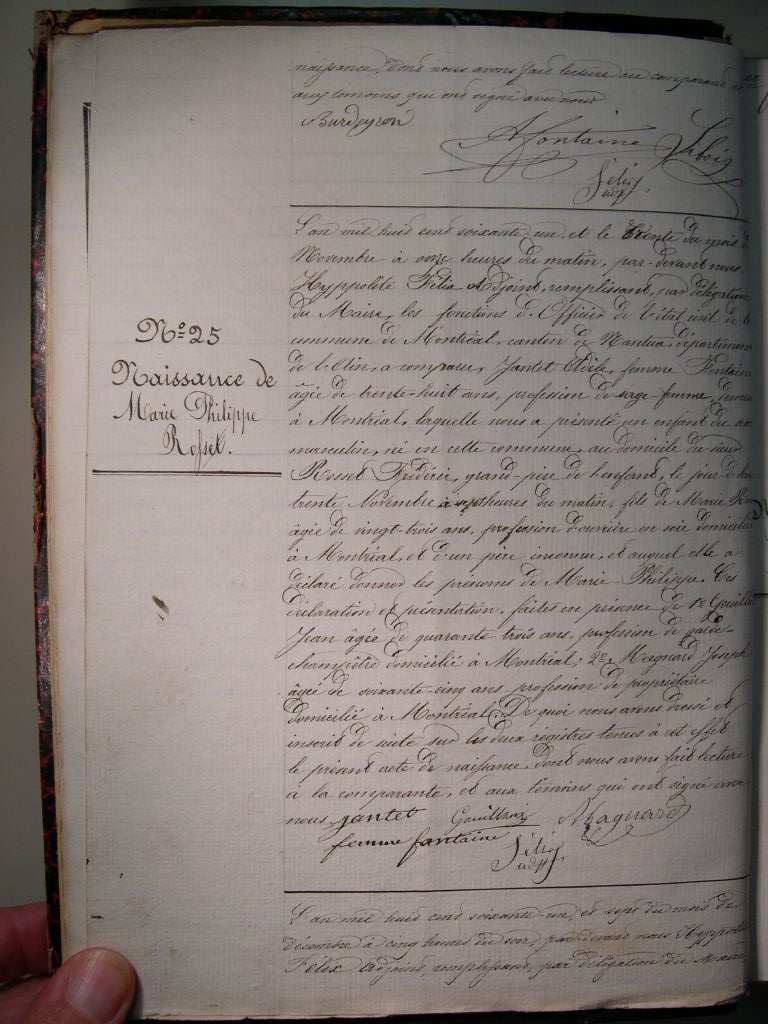 naissance, dont nous avons fait lecture au comparant et
aux temoins qui ont signé avec nous
Burdeyron
A Fontaine Lebois
Félix
adjt
L'an mil huit cent soixante-un, et le trente du mois de
Novembre à onze heures du matin, par-devant nous
Hyppolite Félix Adjoint, remplissant, par délégation
du Maire, les fonctions d'Officier de l'état civil de la
commune de Montréal, canton de Nantua, département
de l'Ain, a comparu, Jantet Odile, femme Fontaine
âgée de trente-huit ans, profession de sage-femme, demeu
à Montréal, laquelle nous a présenté un enfant du sexe
masculin, né en cette commune, au domicile du sieur
Rosset Frédéric, grand-père de l'enfant, le jour d'hui
trente Novembre à sept heures du matin, fils de Marie Ro
âgée de vingt-trois ans, profession d'ouvrière en soie domiciliée
à Montréal, et d'un père inconnu, et auquel elle a
déclaré donner les prénoms de Marie-Philippe. Ces
déclaration et présentation, faites en présence de 1º
Jean âgée de quarante trois ans, profession de garde-
champêtre domicilié à Montréal; 2º Magnard Joseph
âgée de soixante-cinq ans profession de propriétaire
domicilié à Montréal. De quoi nous avons dressé et
inscrit de suite sur les deux registres tenus à cet effet
le présent acte de naissance, dont nous avons fait lecture
à la comparante, et aux témoins qui ont signé avec
nous jantet Magnard
femme fontaine Félix
adjt
Nº 25
Naissance de
Marie Philippe
Rosset.
L'an mil huit cent soixante-un, et sept du mois de
décembre à cinq heures du soir, par devant nous Hyppolite
Félix adjoint, remplissant, par délégation du Maire,